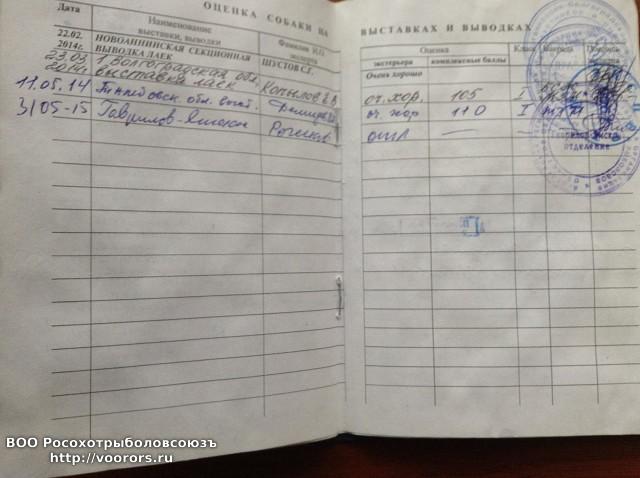 ОЦЕНКА СОБАКИ НА ВЫСТАВКАХ И ВЫВОДКАХ
Дата Наименование выставки, выводки Фамилия И.О. эксперта
Оценка Класс Награда
экстерьера комплексные баллы
22.02. 2014г. НОВОАННИНСКАЯ СЕКЦИОННАЯ ВЫВОДКА ЛАЕК ШУСТОВ С.Г. Очень хорошо
23.03 2014г. 1 Волгоградская обл. выставка лаек Копылов оч. хор. 105 I
11.05.14 обл. оч. хор 110 I
31/05-15 отл —
ОТДЕЛЕНИЕ
ВОО Росохотрыболовсоюзъ
http://voorors.ru